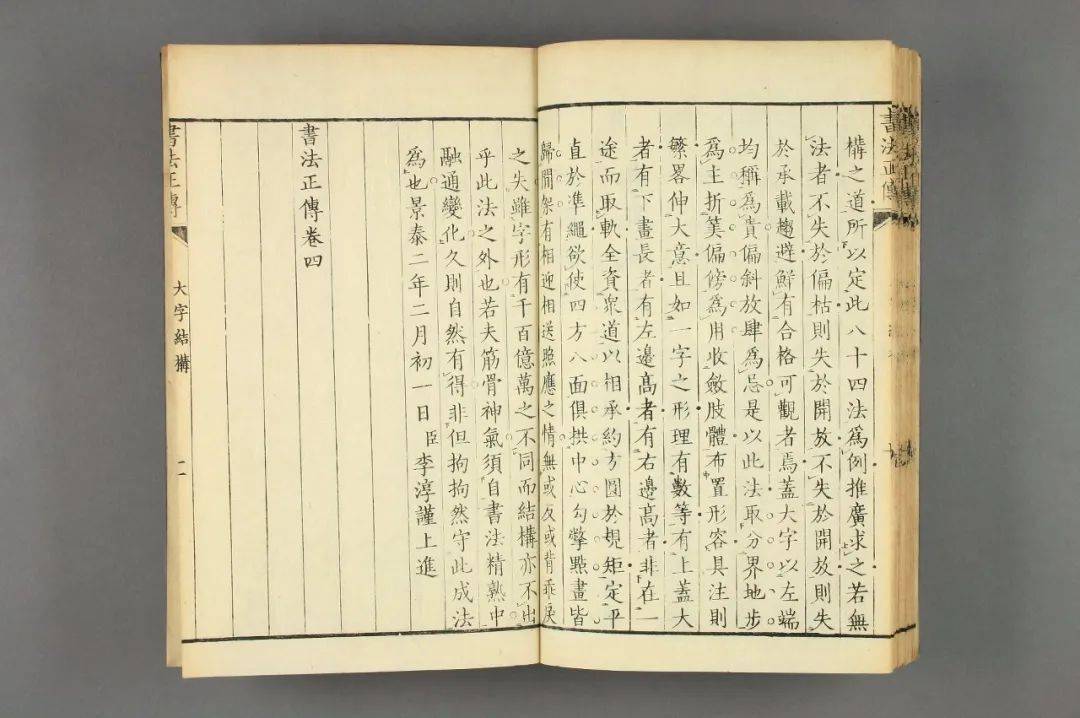 書法正傳
構之道所以定此八十四法爲例推廣求之若無
法者不失於偏枯則失於開放不失於開放則失
於承載趨避鮮有合格可觀者焉蓋大字以左端
均稱爲貴偏斜放肆爲忌是以此法取分界地步
爲主折筭偏傍爲用收斂肢體布置形容具注則
繁畧伸大意且如一字之形理有數等有上蓋大
者有下畫長者有左邊高者有右邊高者非在一
途而取軌全資衆道以相承約方圓於規矩定平
直於凖繩欲使四方八面俱拱中心勾撆㸃畫皆
歸間架有相迎相送照應之情無或反或背乖戾
之失雖字形有千百億萬之不同而結構亦不出
乎此法之外也若夫筋骨神氣須自書法精熟中
融通變化久則自然有得非但拘拘然守此成法
爲也景泰二年二月初一日臣李淳謹上進
書法正傳卷四
書法正傳
大字結構